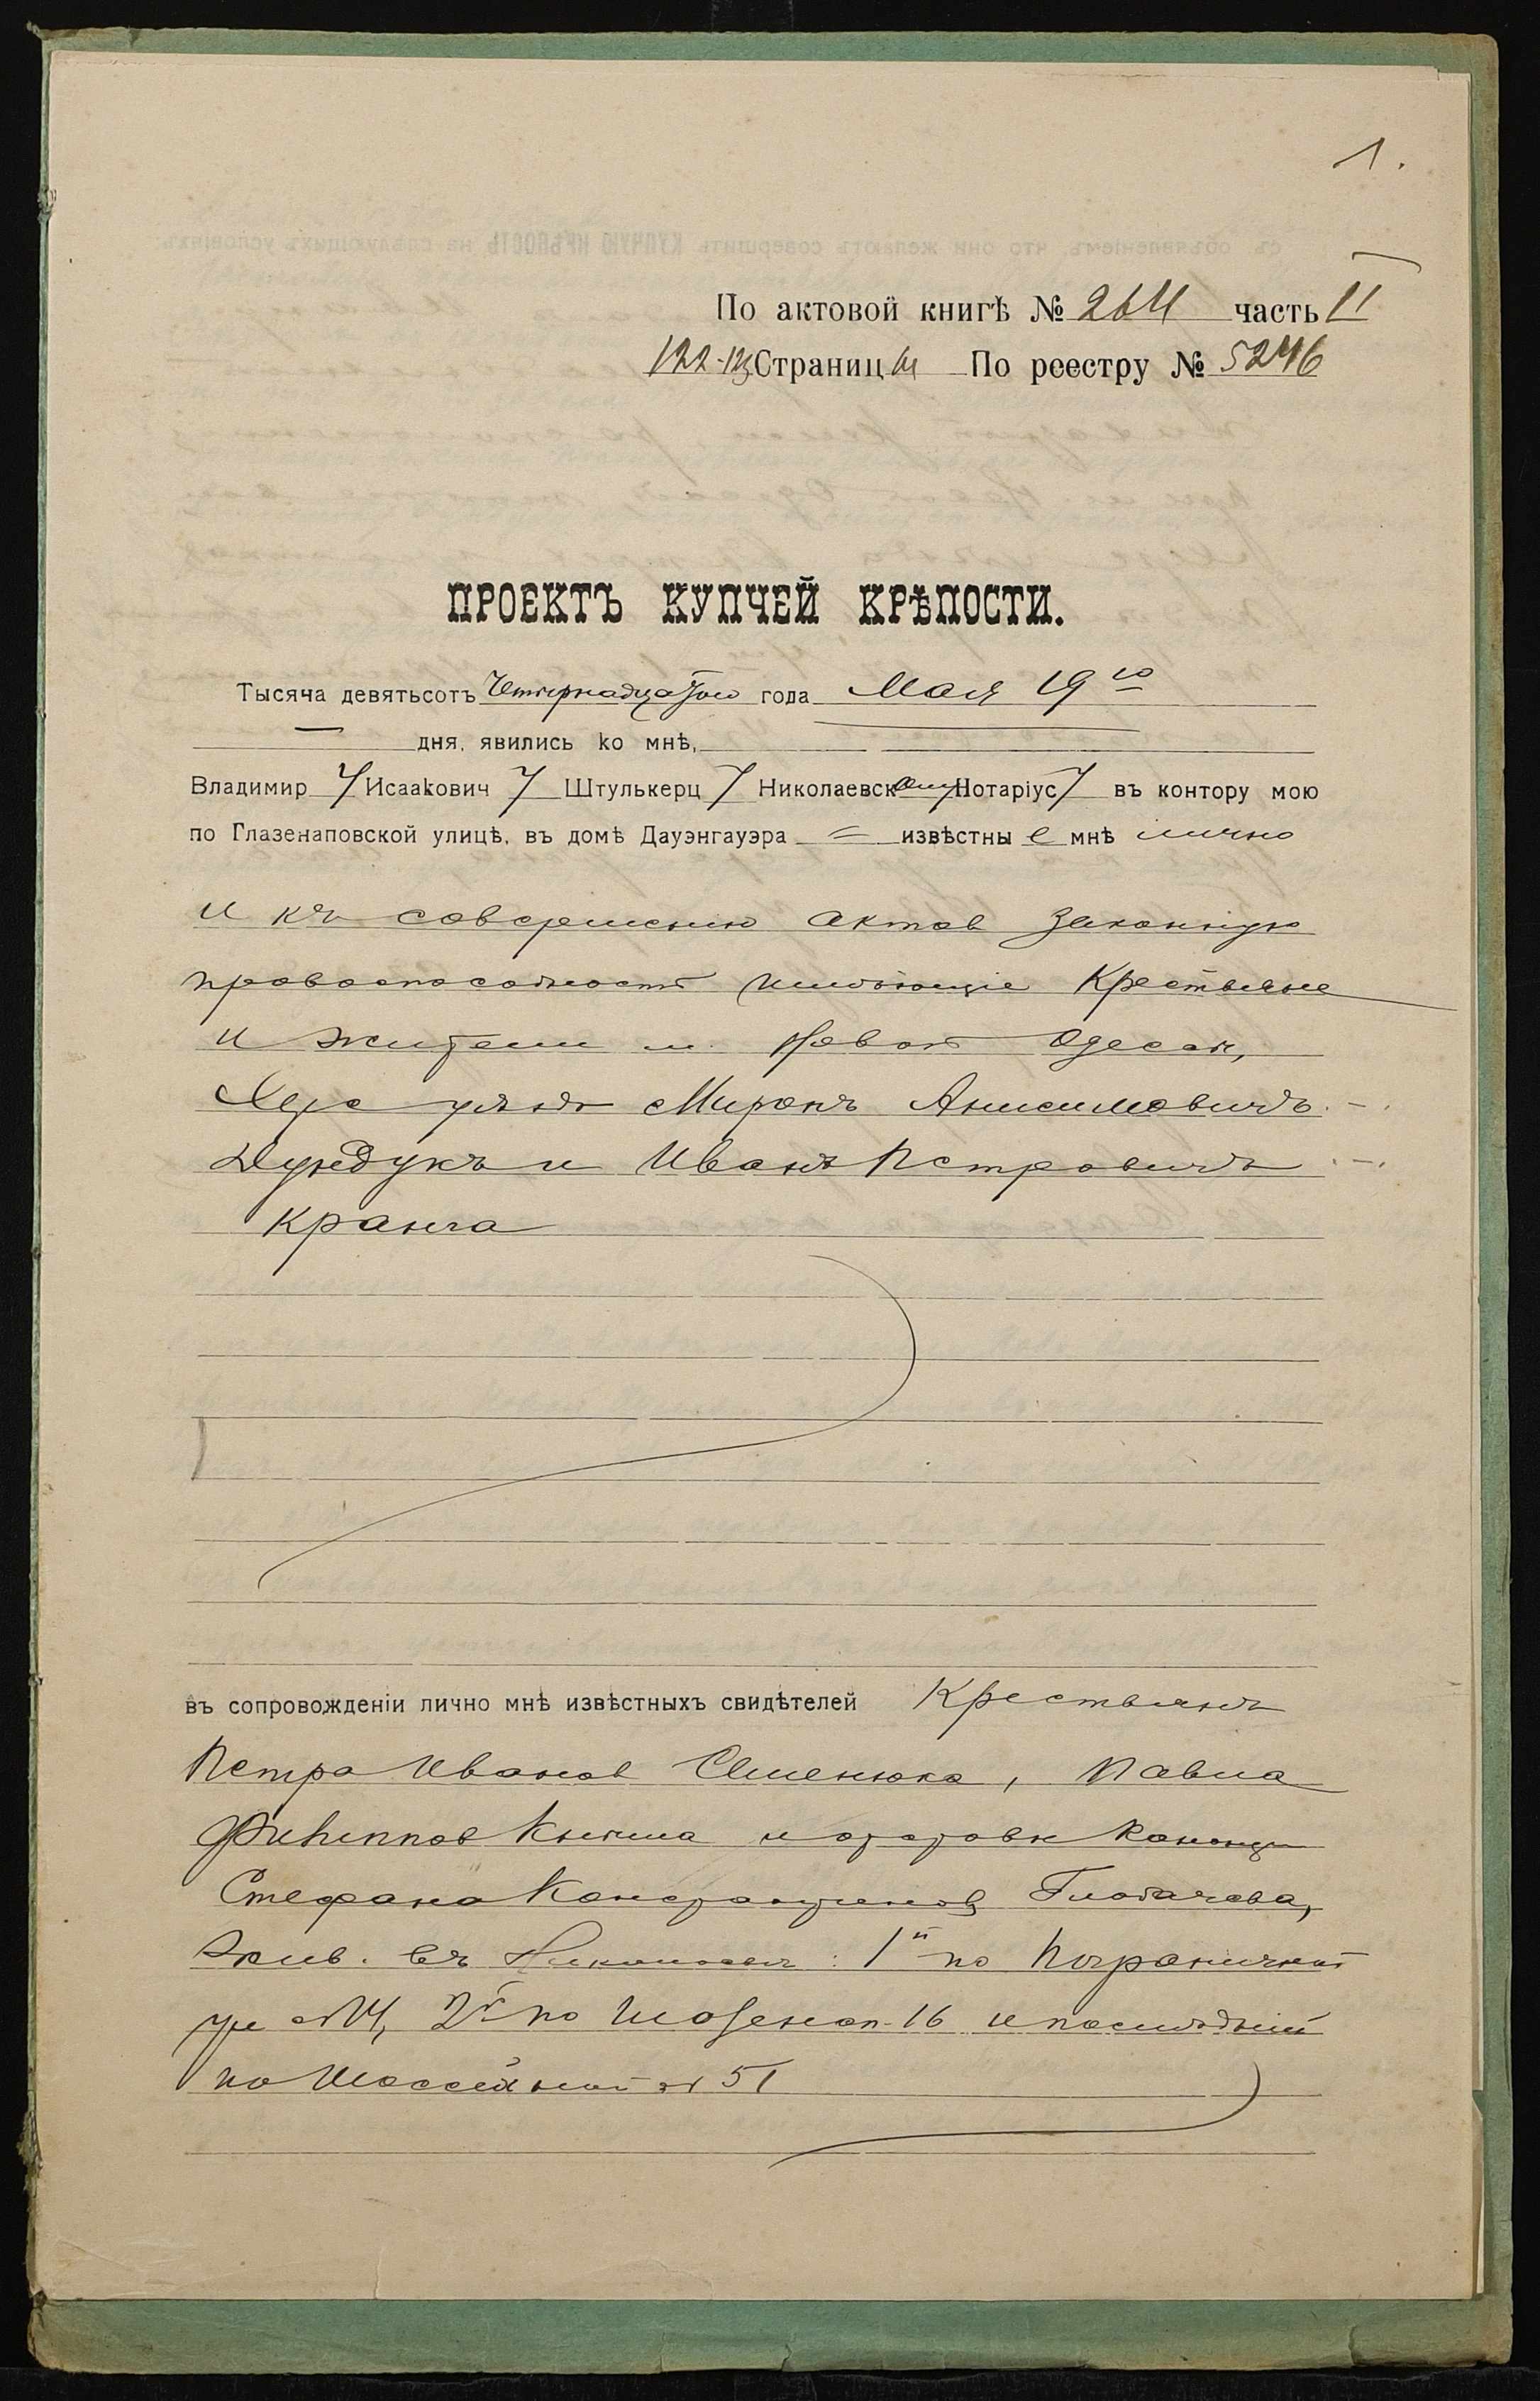 1.
По актовой книгѣ № 264 часть II
122-123 Страницы По реестру № 5246
ПРОЕКТЪ КУПЧЕЙ КРѢПОСТИ.
Тысяча девятьсотъ Четырнадцатого года Мая 19го
дня, явились ко мнѣ,
Владимиру Исааковичу Штулькерцу Николаевскому Нотаріусу въ контору мою
по Глазенаповской улицѣ, въ домѣ Дауэнгауэра извѣстные мнѣ лично
и къ совершенію актов законную
правоспособность имѣющіе Крестьяне
и жители м. Новой Одессы,
Хер уѣзда Миронъ Анисимовичъ
Дундукъ и Иванъ Петровичъ
Кранга
въ сопровожденіи лично мнѣ извѣстныхъ свидѣтелей Крестьянъ
Петра Иванов Семенюка, Павла
Филиппов
Стефана Константинов
жив. въ Николаевѣ: 1й по Пограничной
ул №14, 2й по 16 и послѣдній
по № 51